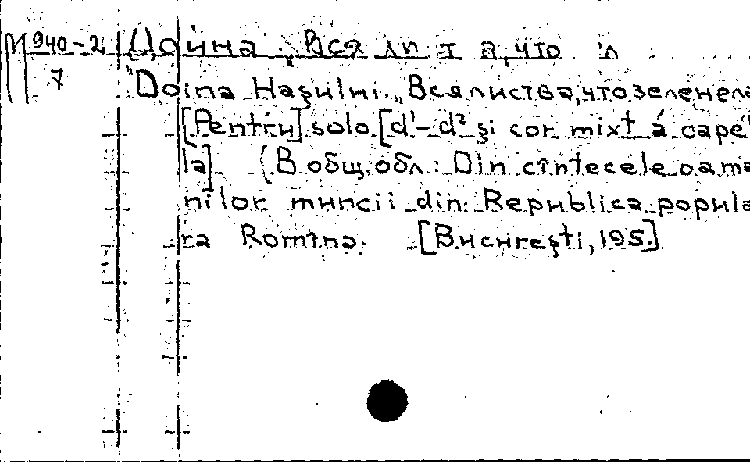 М 940-2
7
Дойна „Вся ли т а, что л
"Doina Haşului. „Вся листва, что зеленела
[Pentru] solo [d¹-d² şi cor mixt á cape
la] (В общ. обл.: Din cîntecele oame
nilor muncii din Republica popula
ra Romîna. [Bucureşti, 195.]